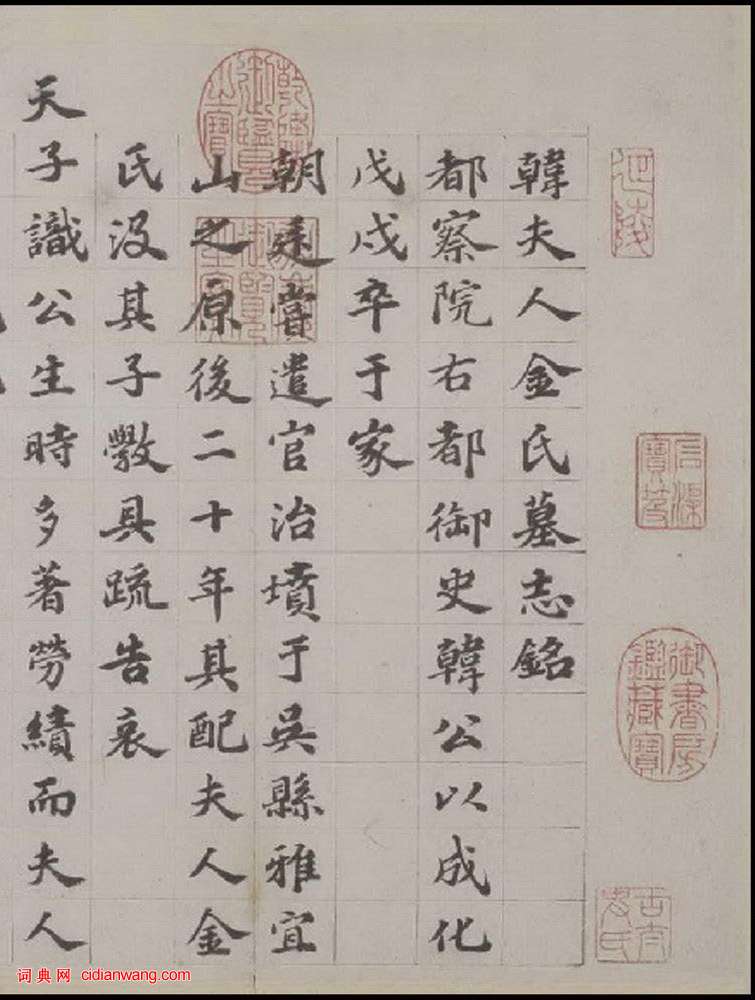 韓夫人金氏墓志銘
都察院右都御史韓公以成化
戊戌卒于家
朝廷嘗遣官治墳于吳縣雅宜
山之原後二十年其配夫人金
氏沒其子斆具疏告哀
天子識公生時多著勞績而夫人
御書房鑑藏寶
乾隆御覽之寶
词典网 cidianwang.com